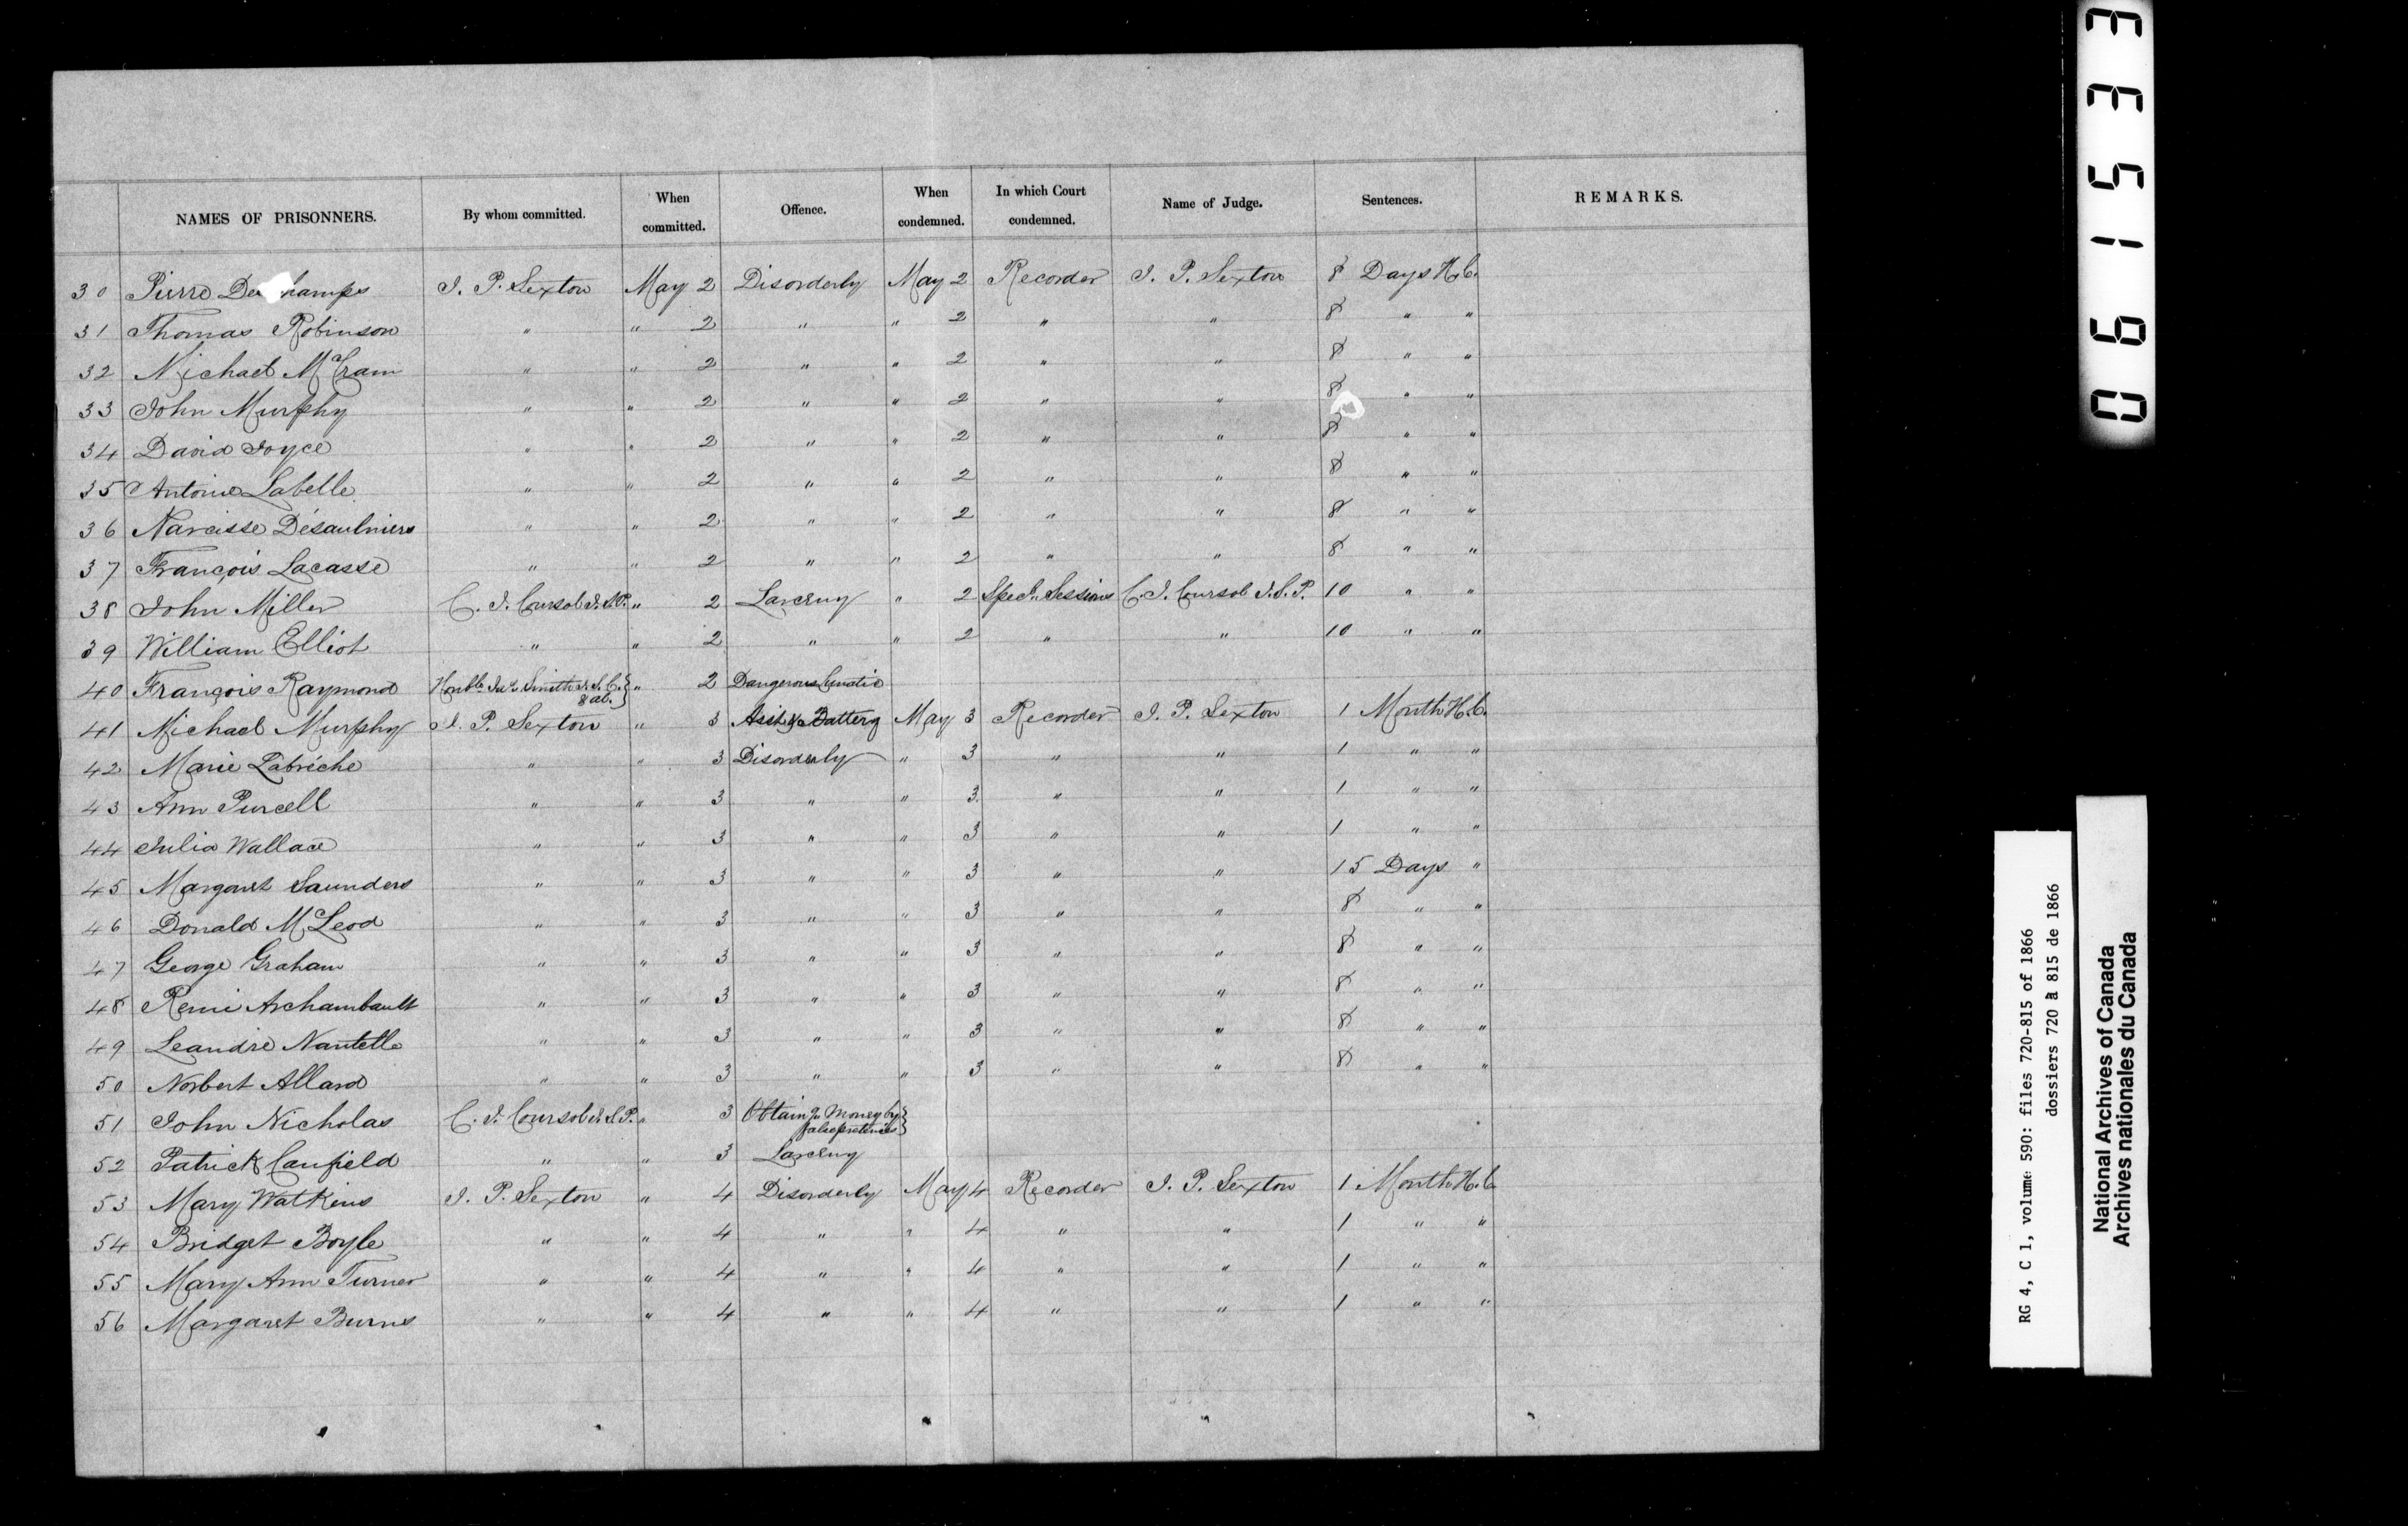 NAMES OF PRISONNERS. By whom committed. When committed. Offence. When condemned. In which Court condemned. Name of Judge. Sentences. REMARKS.
30 Pierre De hamps J. P. Sexton May 2 Disorderly May 2 Recorder J. P. Sexton 8 Days H.L.
31 Thomas Robinson " " 2 " " 2 " " 8 " "
32 Michael " " 2 " " 2 " " 8 " "
33 John Murphy " " 2 " " 2 " " 8 " "
34 David Joyce " " 2 " " 2 " " 8 " "
35 Antoine Labelle " " 2 " " 2 " " 8 " "
36 Narcisse Désaulniers " " 2 " " 2 " " 8 " "
37 François Lacasse " " 2 " " 2 " " 8 " "
38 John Miller C. J. Coursol J.S.P. " 2 Larceny " 2 Specl. Sessions C. J. Coursol J.S.P. 10 " "
39 William Elliot " " 2 " " 2 " " 10 " "
40 François Raymond Honble Jas. Smith J.S.C. & al. } " 2 Dangerous Lunatic
41 Michael Murphy J. P. Sexton " 3 Asst. & Battery May 3 Recorder J. P. Sexton 1 Month H.L.
42 Marie Labréche " " 3 Disorderly " 3 " " 1 " "
43 Ann Purcell " " 3 " " 3 " " 1 " "
44 Julia Wallace " " 3 " " 3 " " 1 " "
45 Margaret Saunders " " 3 " " 3 " " 15 Days "
46 Donald McLeod " " 3 " " 3 " " 8 " "
47 George Graham " " 3 " " 3 " " 8 " "
48 Remi Archambault " " 3 " " 3 " " 8 " "
49 Leandre Nantelle " " 3 " " 3 " " 8 " "
50 Norbert Allard " " 3 " " 3 " " 8 " "
51 John Nicholas C. J. Coursol J.S.P. " 3 Obtaing Money by false pretences }
52 Patrick Canfield " " 3 Larceny
53 Mary Watkins J. P. Sexton " 4 Disorderly May 4 Recorder J. P. Sexton 1 Month H.L.
54 Bridget Boyle " " 4 " " 4 " " 1 " "
55 Mary Ann Turner " " 4 " " 4 " " 1 " "
56 Margaret Burns " " 4 " " 4 " " 1 " "
061533
RG 4, C 1, volume 590: files 720-815 of 1866
dossiers 720 à 815 de 1866
National Archives of Canada
Archives nationales du Canada